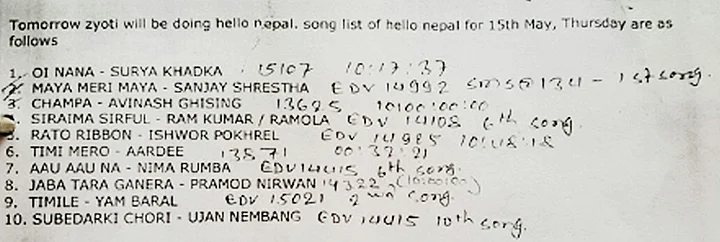 Tomorrow zyoti will be doing hello nepal. song list of hello nepal for 15th May, Thursday are as
follows
1. OI NANA - SURYA KHADKA 15107 10:17:37
2. MAYA MERI MAYA - SANJAY SHRESTHA EDV 14992 - 1st song.
3. CHAMPA - AVINASH GHISING 13625 10:00:00:00
SIRAIMA SIRFUL - RAM KUMAR / RAMOLA EDV 14108 6th song
5. RATO RIBBON - ISHWOR POKHREL EDV 14985 10:48:18
6. TIMI MERO - AARDEE 13871 00:32:21
7. AAU AAU NA - NIMA RUMBA EDV14415 6th song.
8. JABA TARA GANERA - PRAMOD NIRWAN 14322
9. TIMILE - YAM BARAL EDV 15021 2nd song.
10. SUBEDARKI CHORI - UJAN NEMBANG EDV 14415 10th song.